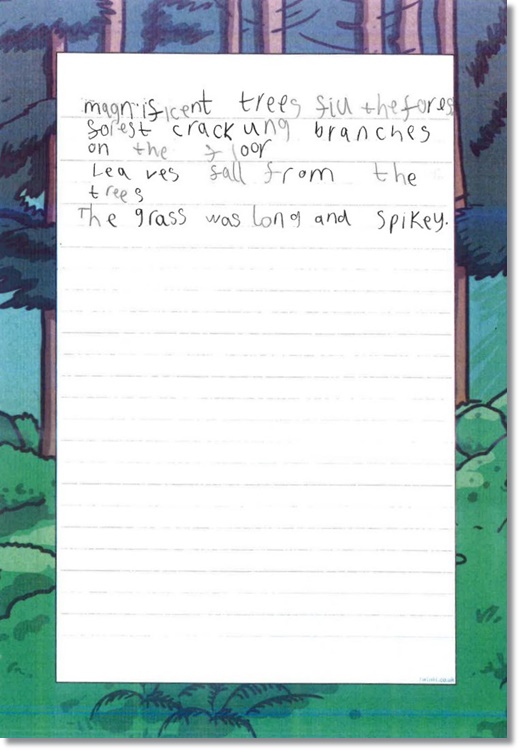 magnificent trees fill the fores
forest cracking branches
on the floor
Leaves fall from the
trees
The grass was long and spikey.